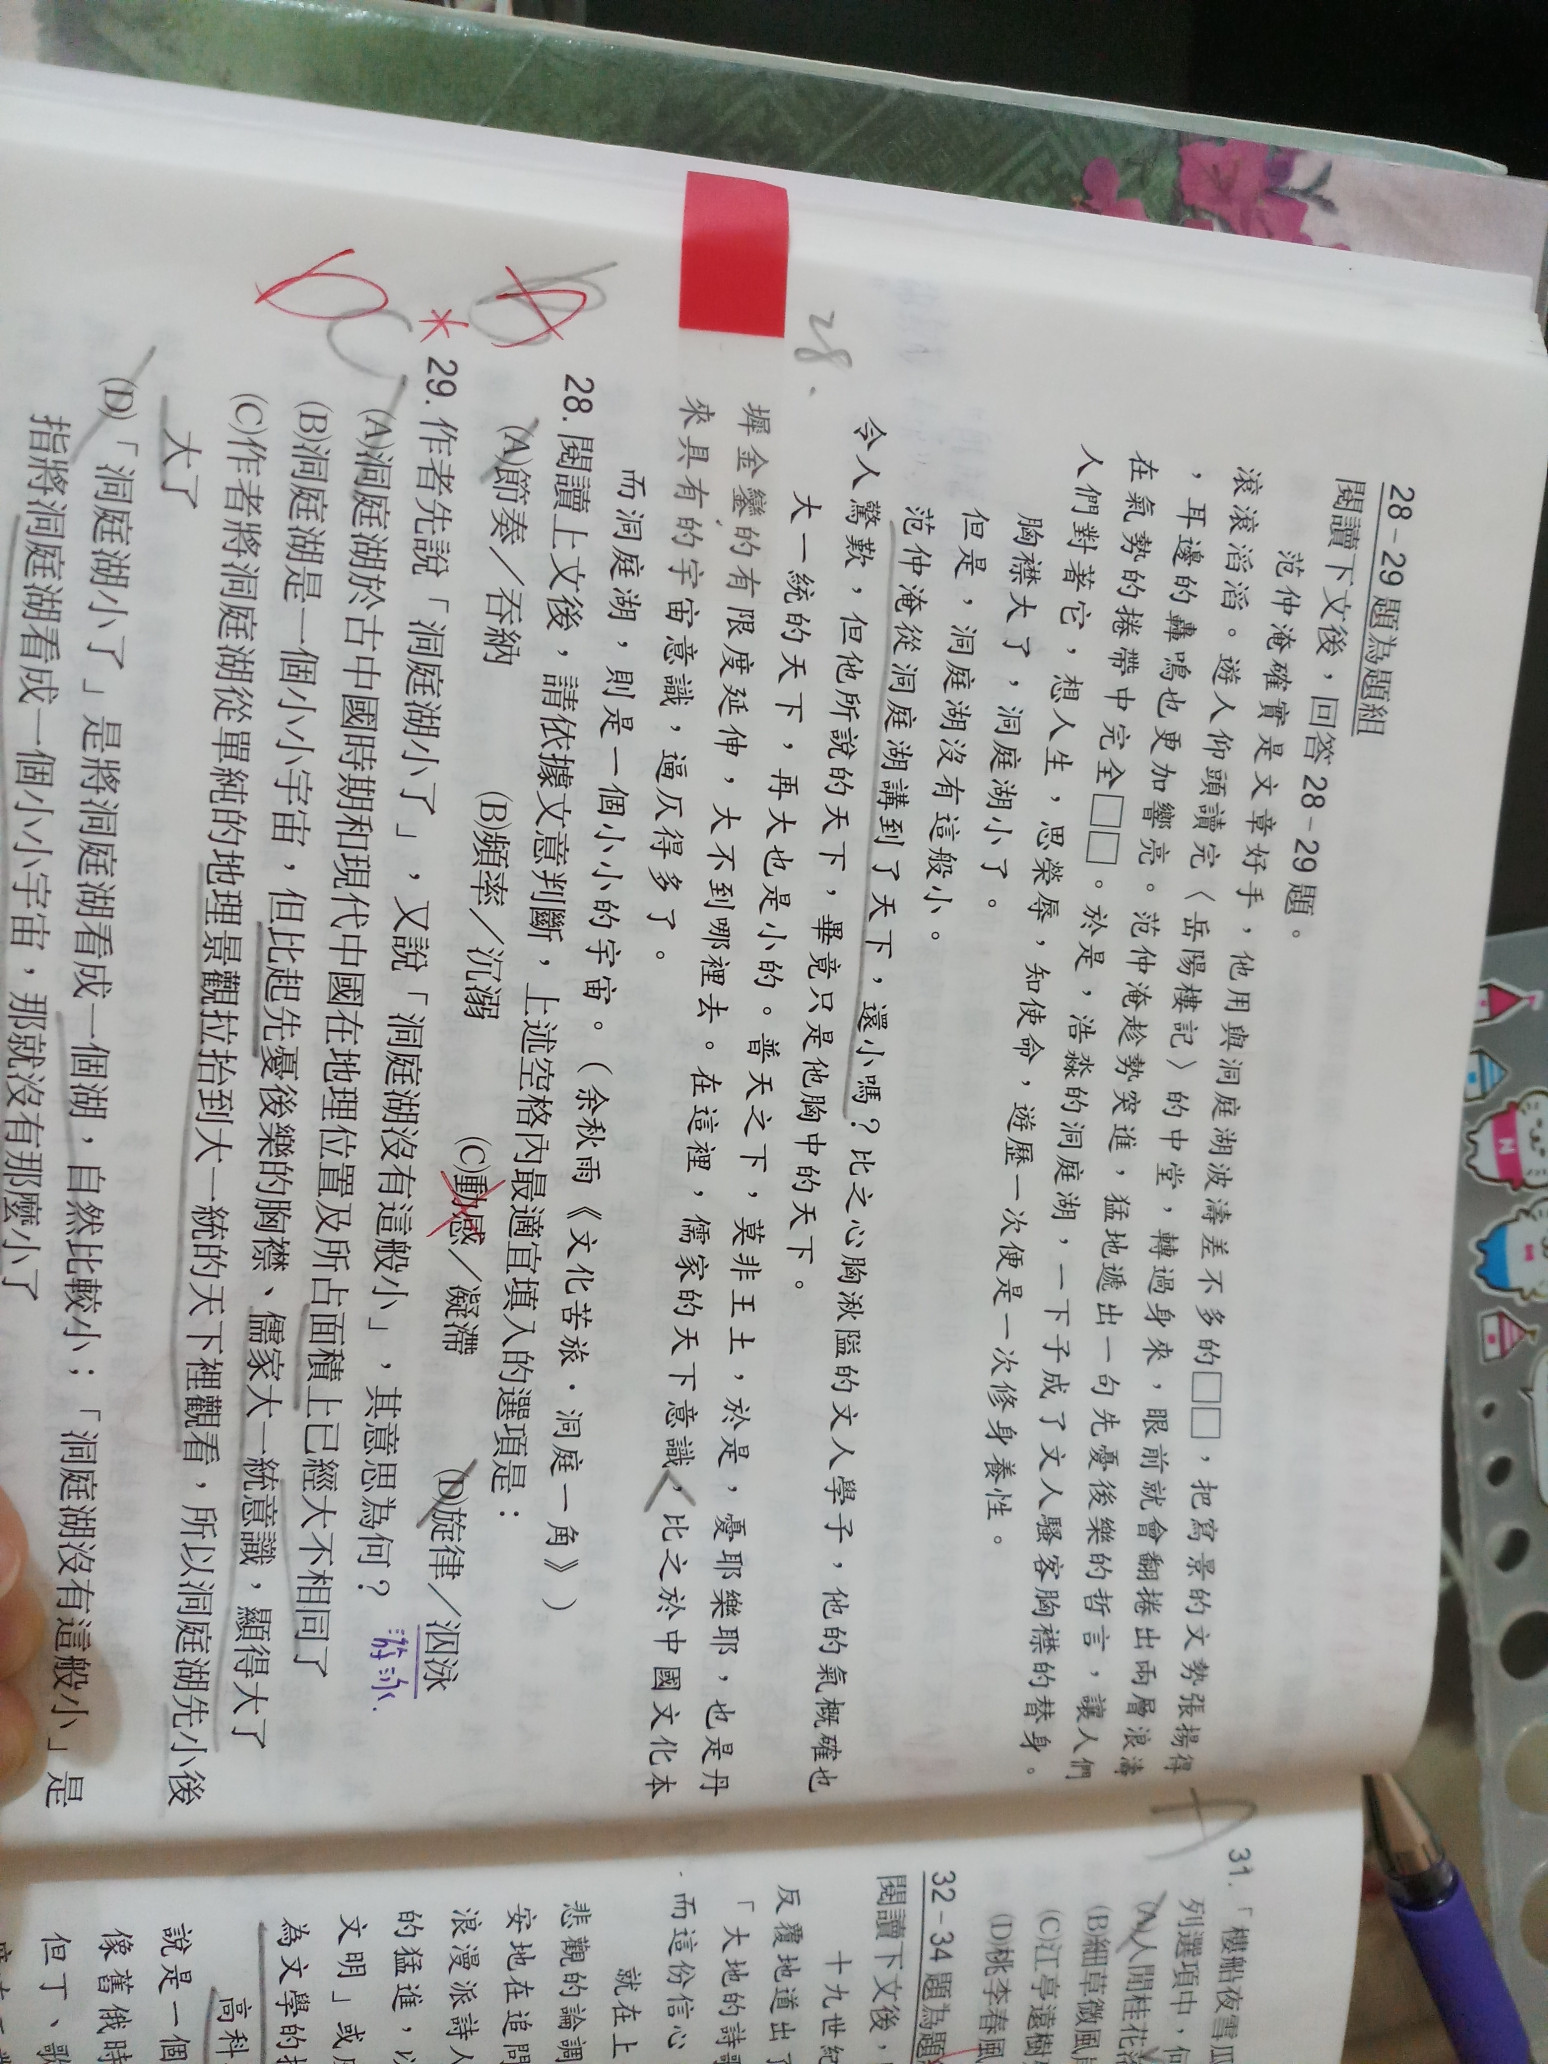 28-29題為題組
閱讀下文後，回答28-29題。
范仲淹確實是文章好手，他用與洞庭湖波濤差不多的□□，把寫景的文勢張揚得
滾滾滔滔。遊人仰頭讀完〈岳陽樓記〉的中堂，轉過身來，眼前就會翻捲出兩層浪濤
，耳邊的轟鳴也更加響亮。范仲淹趁勢突進，猛地遞出一句先憂後樂的哲言，讓人們
在氣勢的捲帶中完全□□。於是，浩淼的洞庭湖，一下子成了文人騷客胸襟的替身。
人們對著它，想人生，思榮辱，知使命，遊歷一次便是一次修身養性。
胸襟大了，洞庭湖小了。
但是，洞庭湖沒有這般小。
范仲淹從洞庭湖講到了天下，還小嗎？比之心胸湫隘的文人學子，他的氣概確也
令人驚歎，但他所說的天下，畢竟只是他胸中的天下。
大一統的天下，再大也是小的。普天之下，莫非王土，於是，憂耶樂耶，也是丹
墀金鑾的有限度延伸，大不到哪裡去。在這裡，儒家的天下意識，比之於中國文化本
來具有的宇宙意識，逼仄得多了。
而洞庭湖，則是一個小小的宇宙。（余秋雨《文化苦旅．洞庭一角》）
28.
28.閱讀上文後，請依據文意判斷，上述空格內最適宜填入的選項是：
(A)節奏／吞納 (B)頻率／沉溺 (C)動感／凝滯 (D)旋律／泅泳
游泳
29.作者先說「洞庭湖小了」，又說「洞庭湖沒有這般小」，其意思為何？
(A)洞庭湖於古中國時期和現代中國在地理位置及所占面積上已經大不相同了
(B)洞庭湖是一個小小宇宙，但比起先憂後樂的胸襟、儒家大一統意識，顯得大了
(C)作者將洞庭湖從單純的地理景觀拉抬到大一統的天下裡觀看，所以洞庭湖先小後
大了
(D)「洞庭湖小了」是將洞庭湖看成一個湖，自然比較小；「洞庭湖沒有這般小」是
指將洞庭湖看成一個小小宇宙，那就沒有那麼小了
A
31.「樓船夜雪瓜
列選項中，何
(A)人閒桂花落
(B)細草微風岸
(C)江亭遠樹
(D)桃李春風
32-34題為題
閱讀下文後，
十九世紀
反覆地道出了
「大地的詩歌
而這份信心
就在上
悲觀的論調
安地在追問
浪漫派詩人
的猛進，以
文明」或
為文學的
高科
說是一個
像舊俄時
但丁、歌